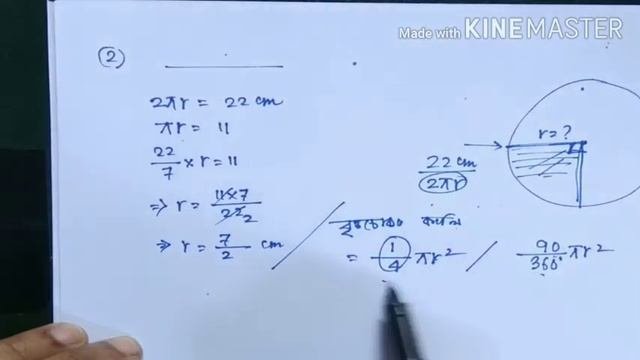 Made with KINEMASTER
(2)
2πr = 22 cm
πr = 11
22/7 × r = 11
⇒ r = 11×7/22 2
⇒ r = 7/2 cm
r = ?
22 cm
2πr
= 1/4 πr² / 90/360° πr²